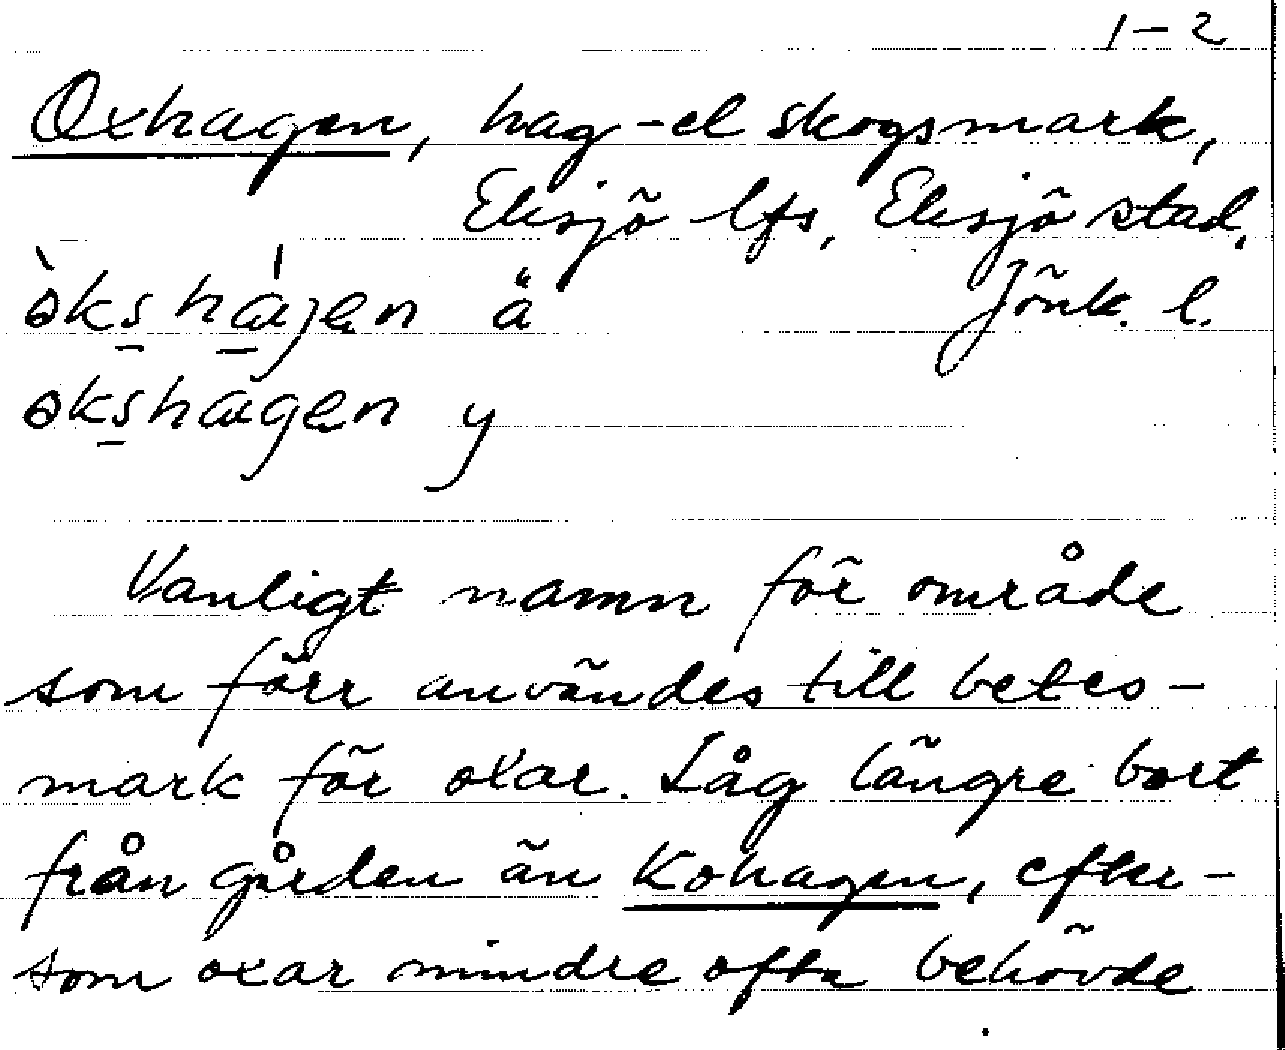 1–2
Oxhagen, hag-el skogsmark,
Eksjö lfs, Eksjö stad,
òkshájen ä Jönk. l.
økshagen y
Vanligt namn för område
som förr användes till betes-
mark för oxar. Låg längre bort
från gården än Kohagen, efter-
som oxar mindre ofta behövde